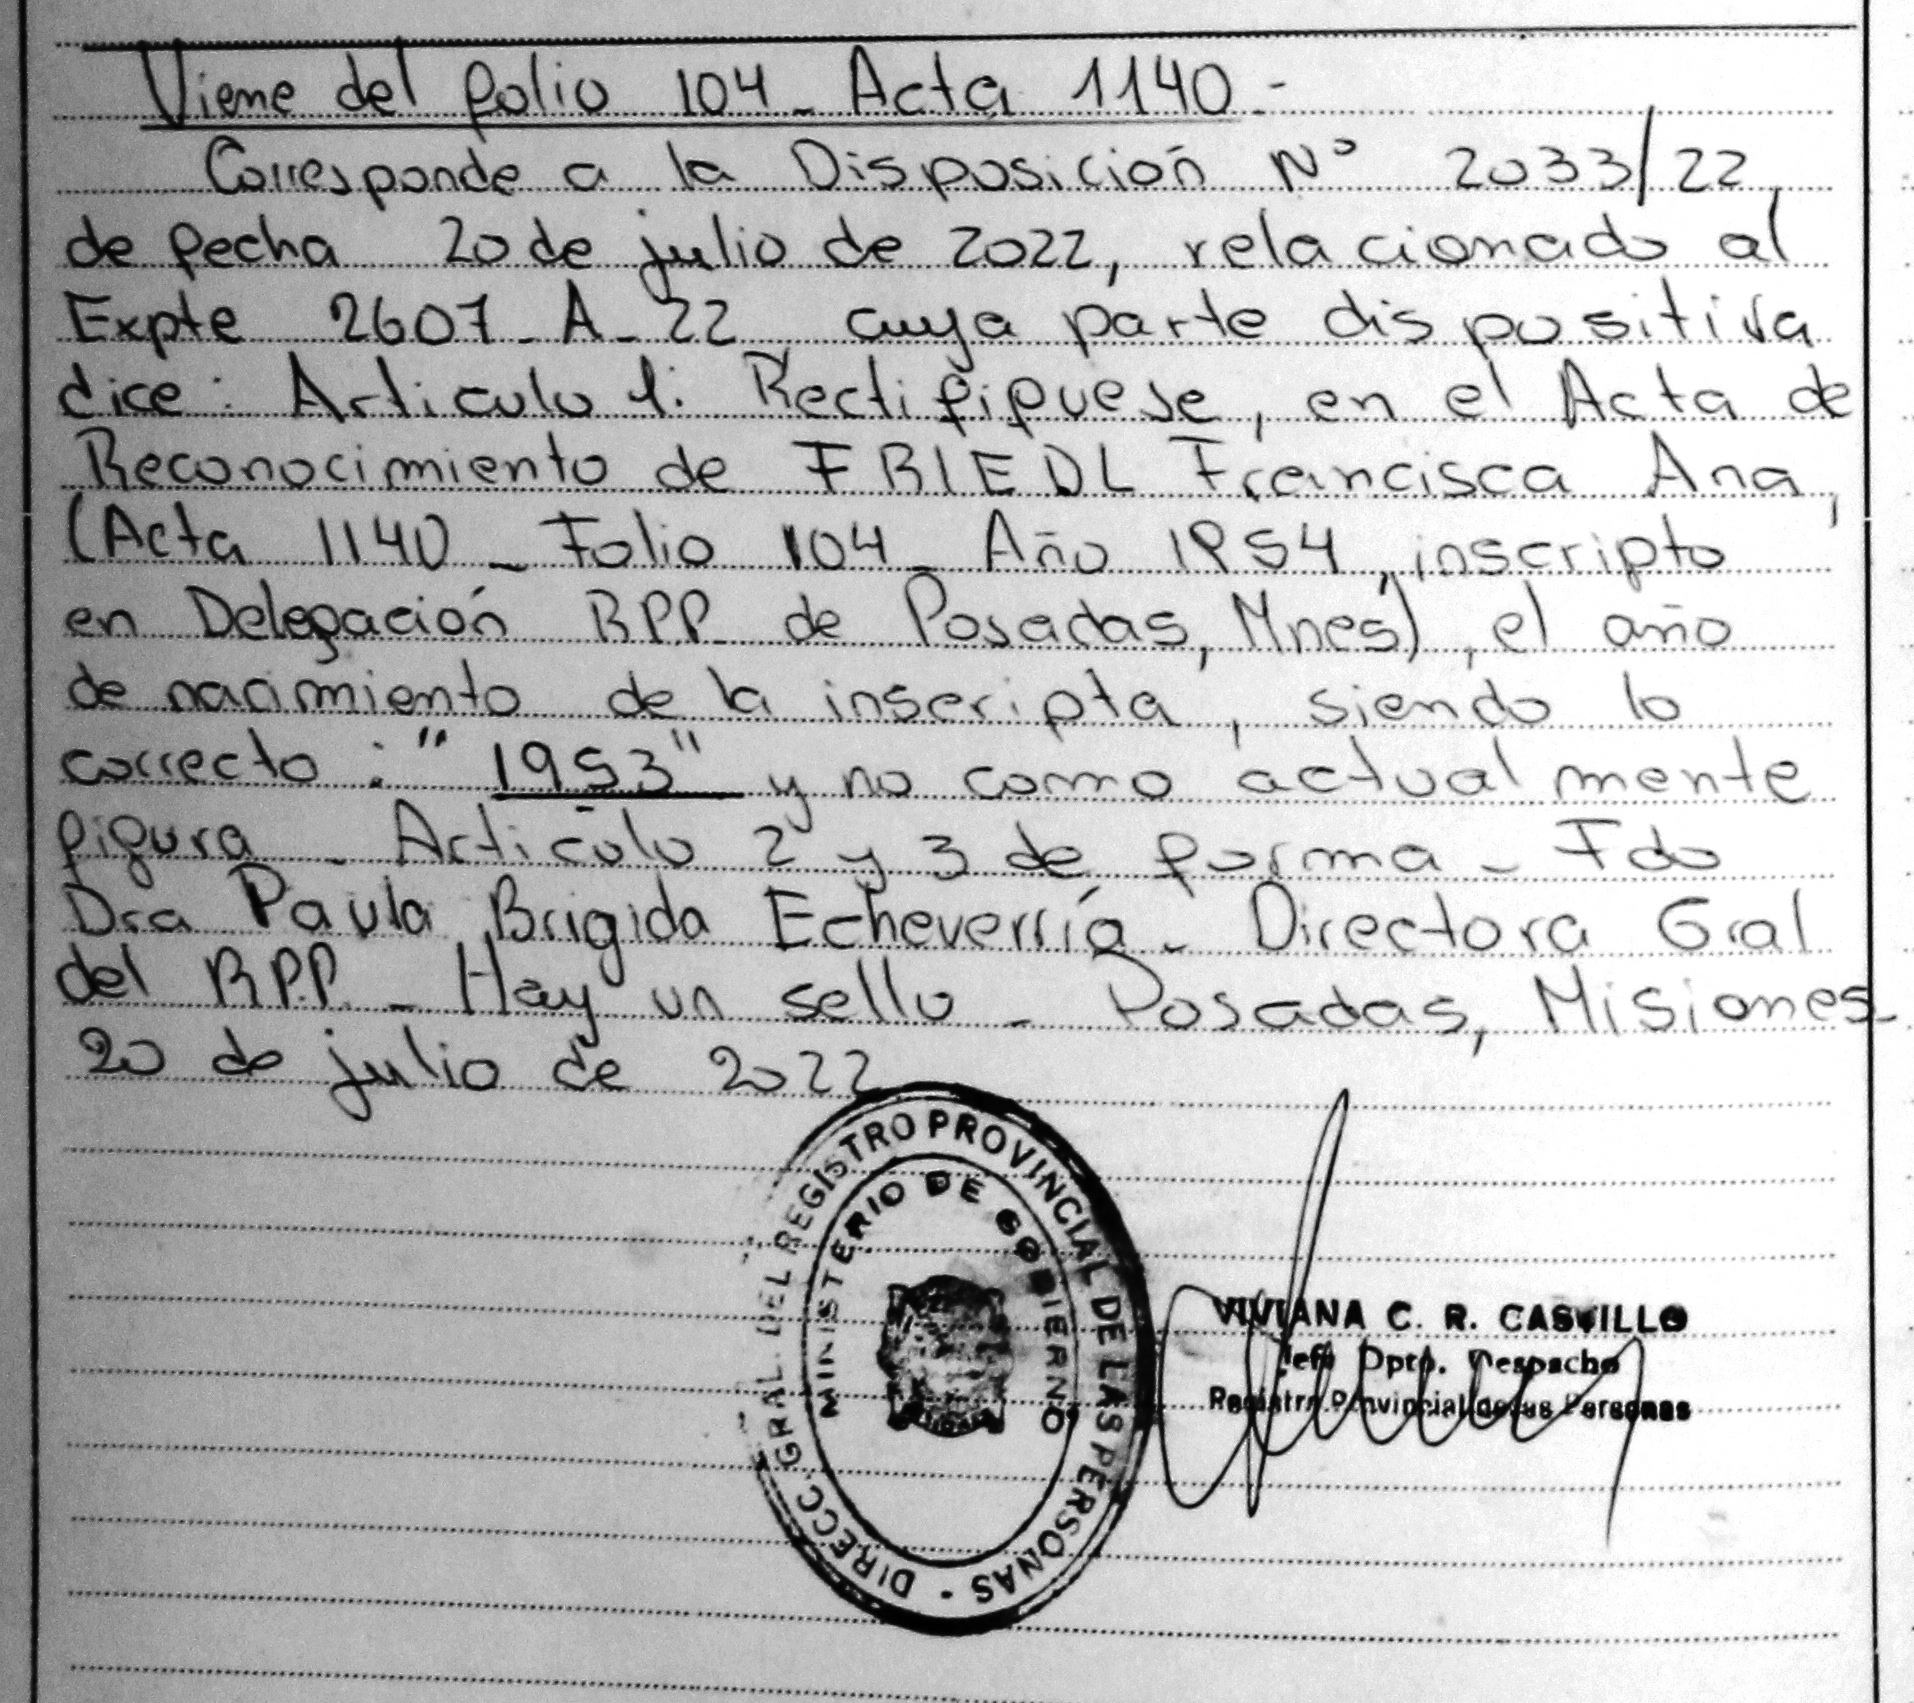 Viene del folio 104 - Acta 1140 -
Corresponde a la Disposición N° 2033/22,
de fecha 20 de julio de 2022, relacionado al
Expte 2607 - A - 22 cuya parte dispositiva
dice: Articulo 1: Rectifiquese, en el Acta de
Reconocimiento de FRIEDL Francisca Ana,
(Acta 1140 - Folio 104 - Año 1954, inscripto
en Delegación RPP de Posadas, Mnes), el año
de nacimiento de la inscripta, siendo lo
correcto: "1953" y no como actualmente
figura - Articulo 2 y 3 de forma - Fdo
Dra Paula Brigida Echeverría - Directora Gral
del RPP. - Hay un sello - Posadas, Misiones -
20 de julio de 2022
DIRECC. GRAL. DEL REGISTRO PROVINCIAL DE LAS PERSONAS -
MINISTERIO DE GOBIERNO
VIVIANA C. R. CASTILLO
Jefe Dpto. Despacho
Registro Provincial de las Personas